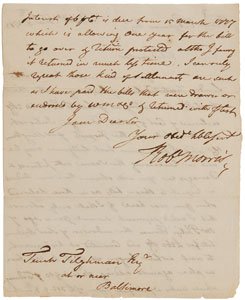 Interest of 6 pCt. is due from 15 March 1787
which is allowing One Year for the bill
to go over & return protested altho I
it returned in much less time. I can only
repeat those kind of Settlements are such
as I have paid the bills that were drawn or
endorsed by & returned with
I am Dear Sir
Your Obedt hble Servt
Robt Morris
Tench Tilghman Esqr.
at or near
Baltimore